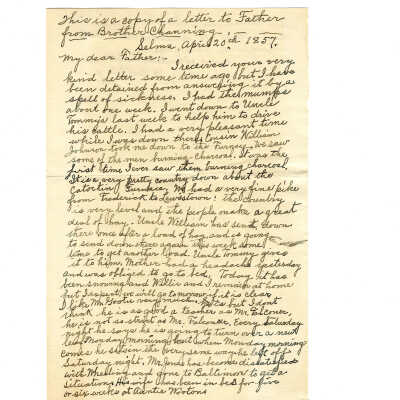 This is a copy of a letter to Father
from Brother Channing.
Selma, April 20th 1857.
My dear Father:-
I received your very
kind letter some time ago but I have
been detained from answering it by a
spell of sickness. I had the mumps
about one week. I went down to Uncle
Tommy's last week to help him to drive
his cattle. I had a very pleasant time
while I was down there. Cousin William
Johnson took me down to the Furnace. We saw
some of the men burning charcoal. It was the
first time I ever saw them burning charcoal
It is a very pretty country down about the
Catoctin Furnace, We had a very fine pike
from Frederick to Lewistown! the country
is very level and the people make a great
deal of hay. Uncle William has sent down
there once after a load of hay and is going
to send down there again this week some
time to get another load. Uncle Tommy gives
it to him. Mother had a headache yesterday
and was obliged to go to bed, Today it has
been snowing and Willie and I remain at home
but I expect we will go tomorrow if it is clear
I like Mr. very much, but I dont
think he is as good a teacher as Mr. Falconer,
he is not as strict as Mr. Falconer, Every Saturday
night he says he is going to turn over a new
leaf Monday morning but when Monday morning
comes he is in the very same way he left off
Saturday night, Mr. Jones has become dissatisfied
with Wheeling and gone to Baltimore to get a
situation, His wife has been in bed for five
or six weeks at Auntie Wootons